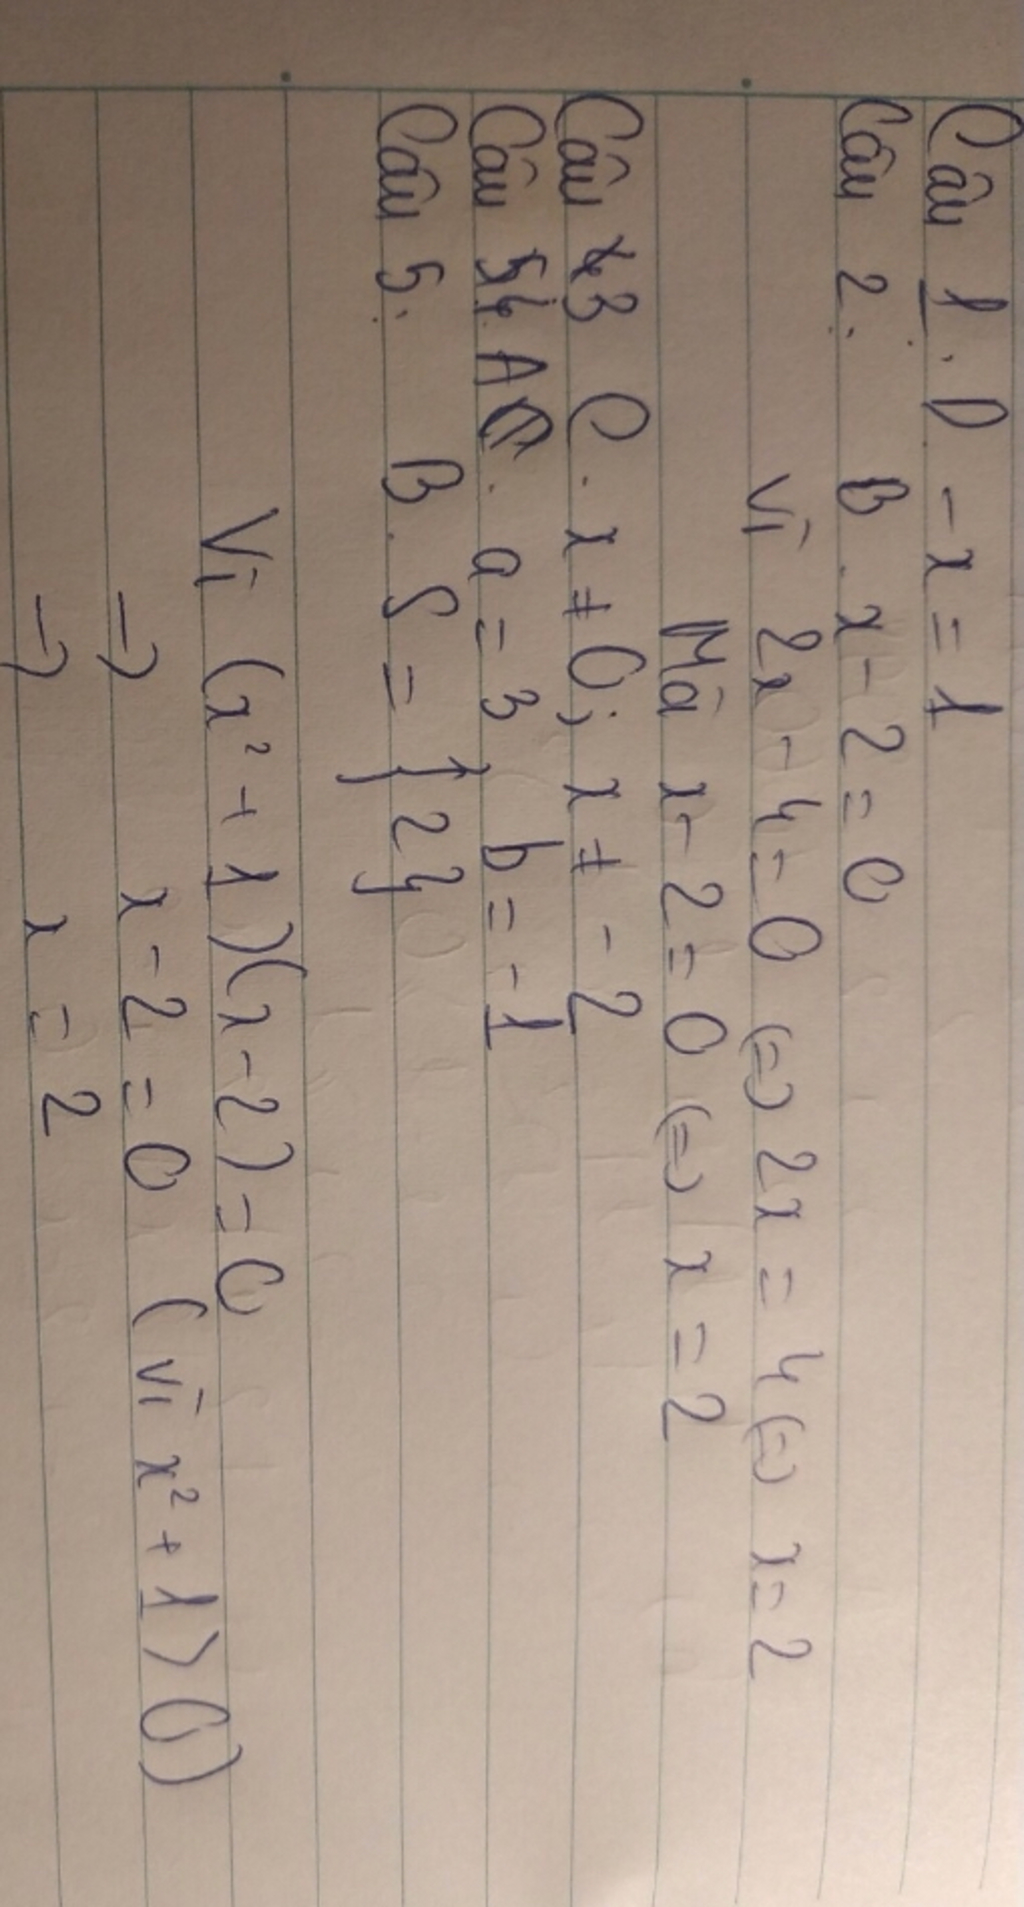 Câu 1. D -x = 1
Câu 2. B. x - 2 = 0
Vì 2x - 4 = 0 (=) 2x = 4 (=) x = 2
Mà x - 2 = 0 (=) x = 2
Câu 3 C. x ≠ 0; x ≠ -2
Câu 4. A. a = 3 b = -1
Câu 5. B. S = {2}
Vì (x² + 1)(x - 2) = 0
→ x - 2 = 0 (vì x² + 1 > 0)
→ x = 2